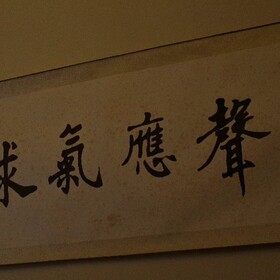 聲應氣求